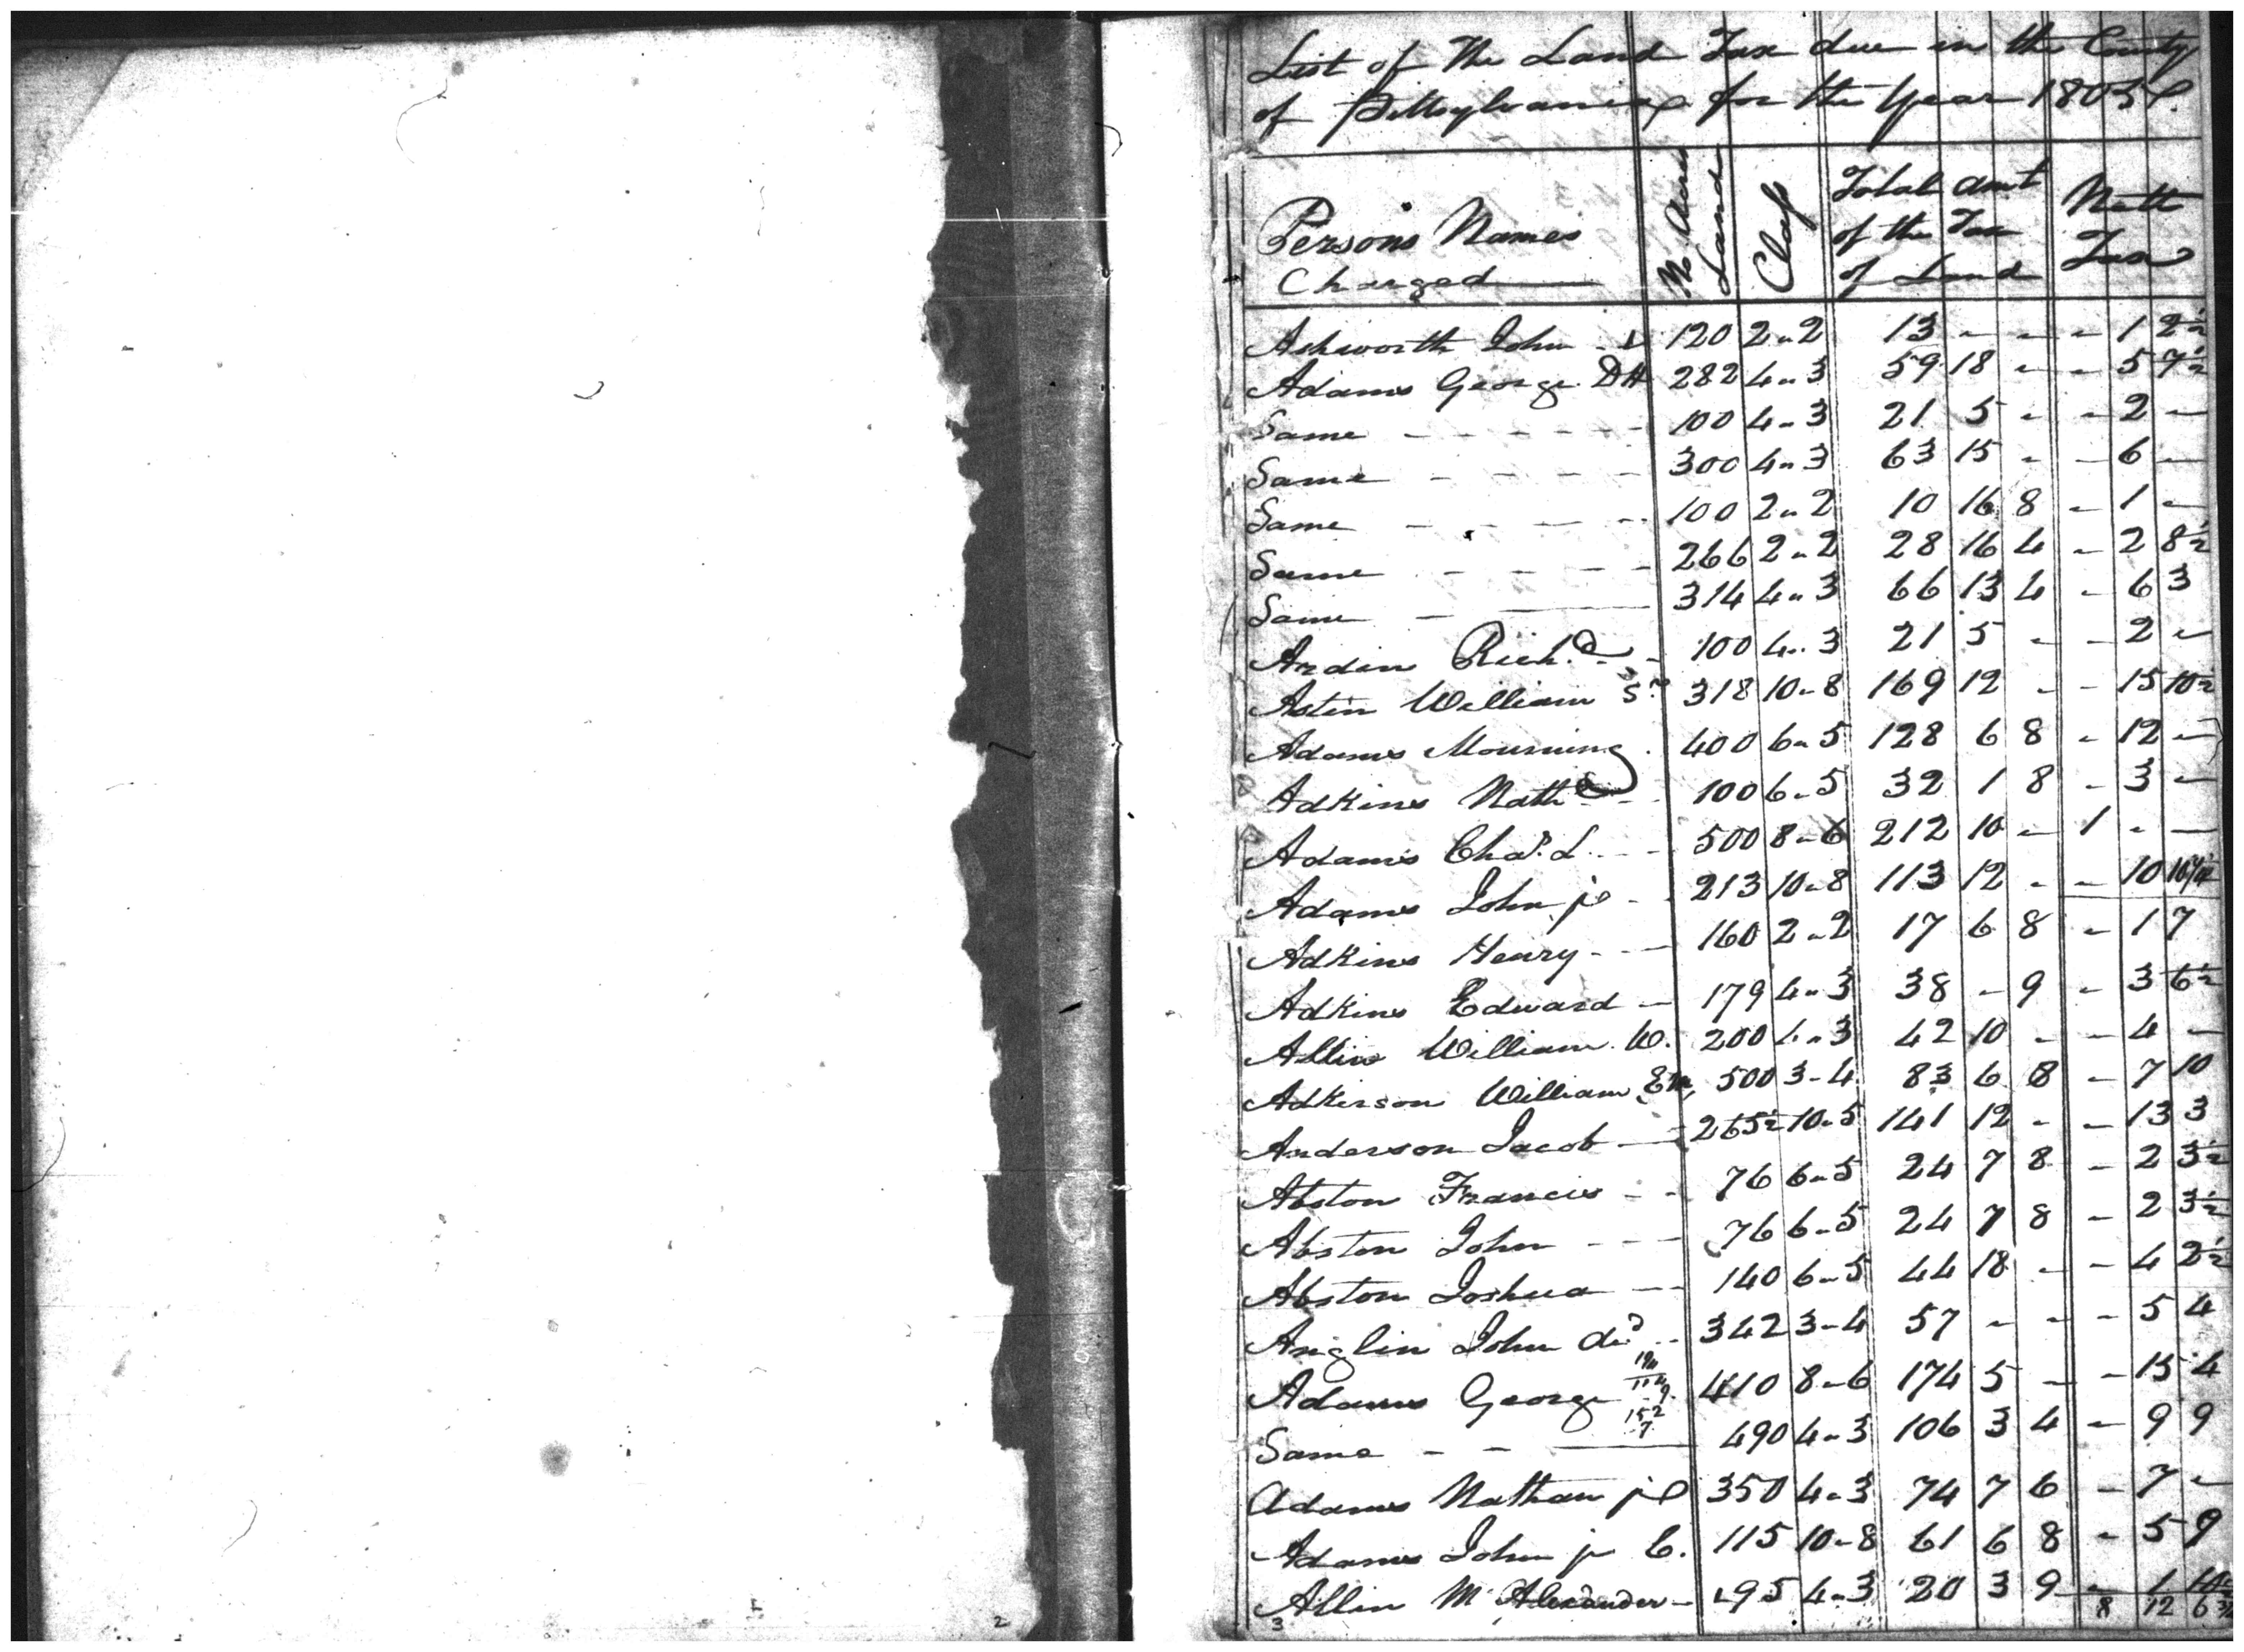 List of the Land Tax due in the County
of Pittsylvania for the Year 1803
Persons Names Charged
No Acres Land
Class
Total amt of the Tax of Land
Nett Tax
Ashworth John 120 2 " 2 13 - - - 1 2½
Adams George DH 282 4 " 3 59 18 - - 5 7½
Same - - - - - - 100 4 " 3 21 5 - - 2 -
Same - - - - - 300 4 " 3 63 15 - - 6 -
Same - - - - - 100 2 " 2 10 16 8 - 1 -
Same - - - - - 266 2 " 2 28 16 4 - 2 8½
Same - 314 4 " 3 66 13 4 - 6 3
Ardin Richd - - 100 4 " 3 21 5 - - 2 -
Astin William Sr 318 10 " 8 169 12 - - 15 10½
Adams Mourning 400 6 " 5 128 6 8 - 12 -
Adkins Nath - - 100 6 " 5 32 1 8 - 3 -
Adams Chas. L - - 500 8 " 6 212 10 - 1 - -
Adams John jr - 213 10 " 8 113 12 - - 10
Adkins Henry - - 160 2 " 2 17 6 8 - 1 7
Adkins Edward - 179 4 " 3 38 - 9 - 3 6½
Allin William W. 200 4 " 3 42 10 - - 4 -
Adkerson William 500 3 - 4 83 6 8 - 7 10
Anderson Jacob - 265½ 10 " 5 141 12 - - 13 3
Abston Francis - - 76 6 " 5 24 7 8 - 2 3½
Abston John - - - 76 6 " 5 24 7 8 - 2 3½
Abston Joshua - - 140 6 " 5 44 18 - - 4 2½
Anglin John decd - 342 3 - 4 57 - - - 5 4
Adams George 410 8 " 6 174 5 - - 15 4
152
7
Same - - 490 4 " 3 106 3 4 - 9 9
Adams Nathan jr 350 4 " 3 74 7 6 - 7 -
Adams John jr C. 115 10 " 8 61 6 8 - 5 9
Allin M Alexander - 95 4 " 3 20 3 9 - 1
3 8 12 6
2